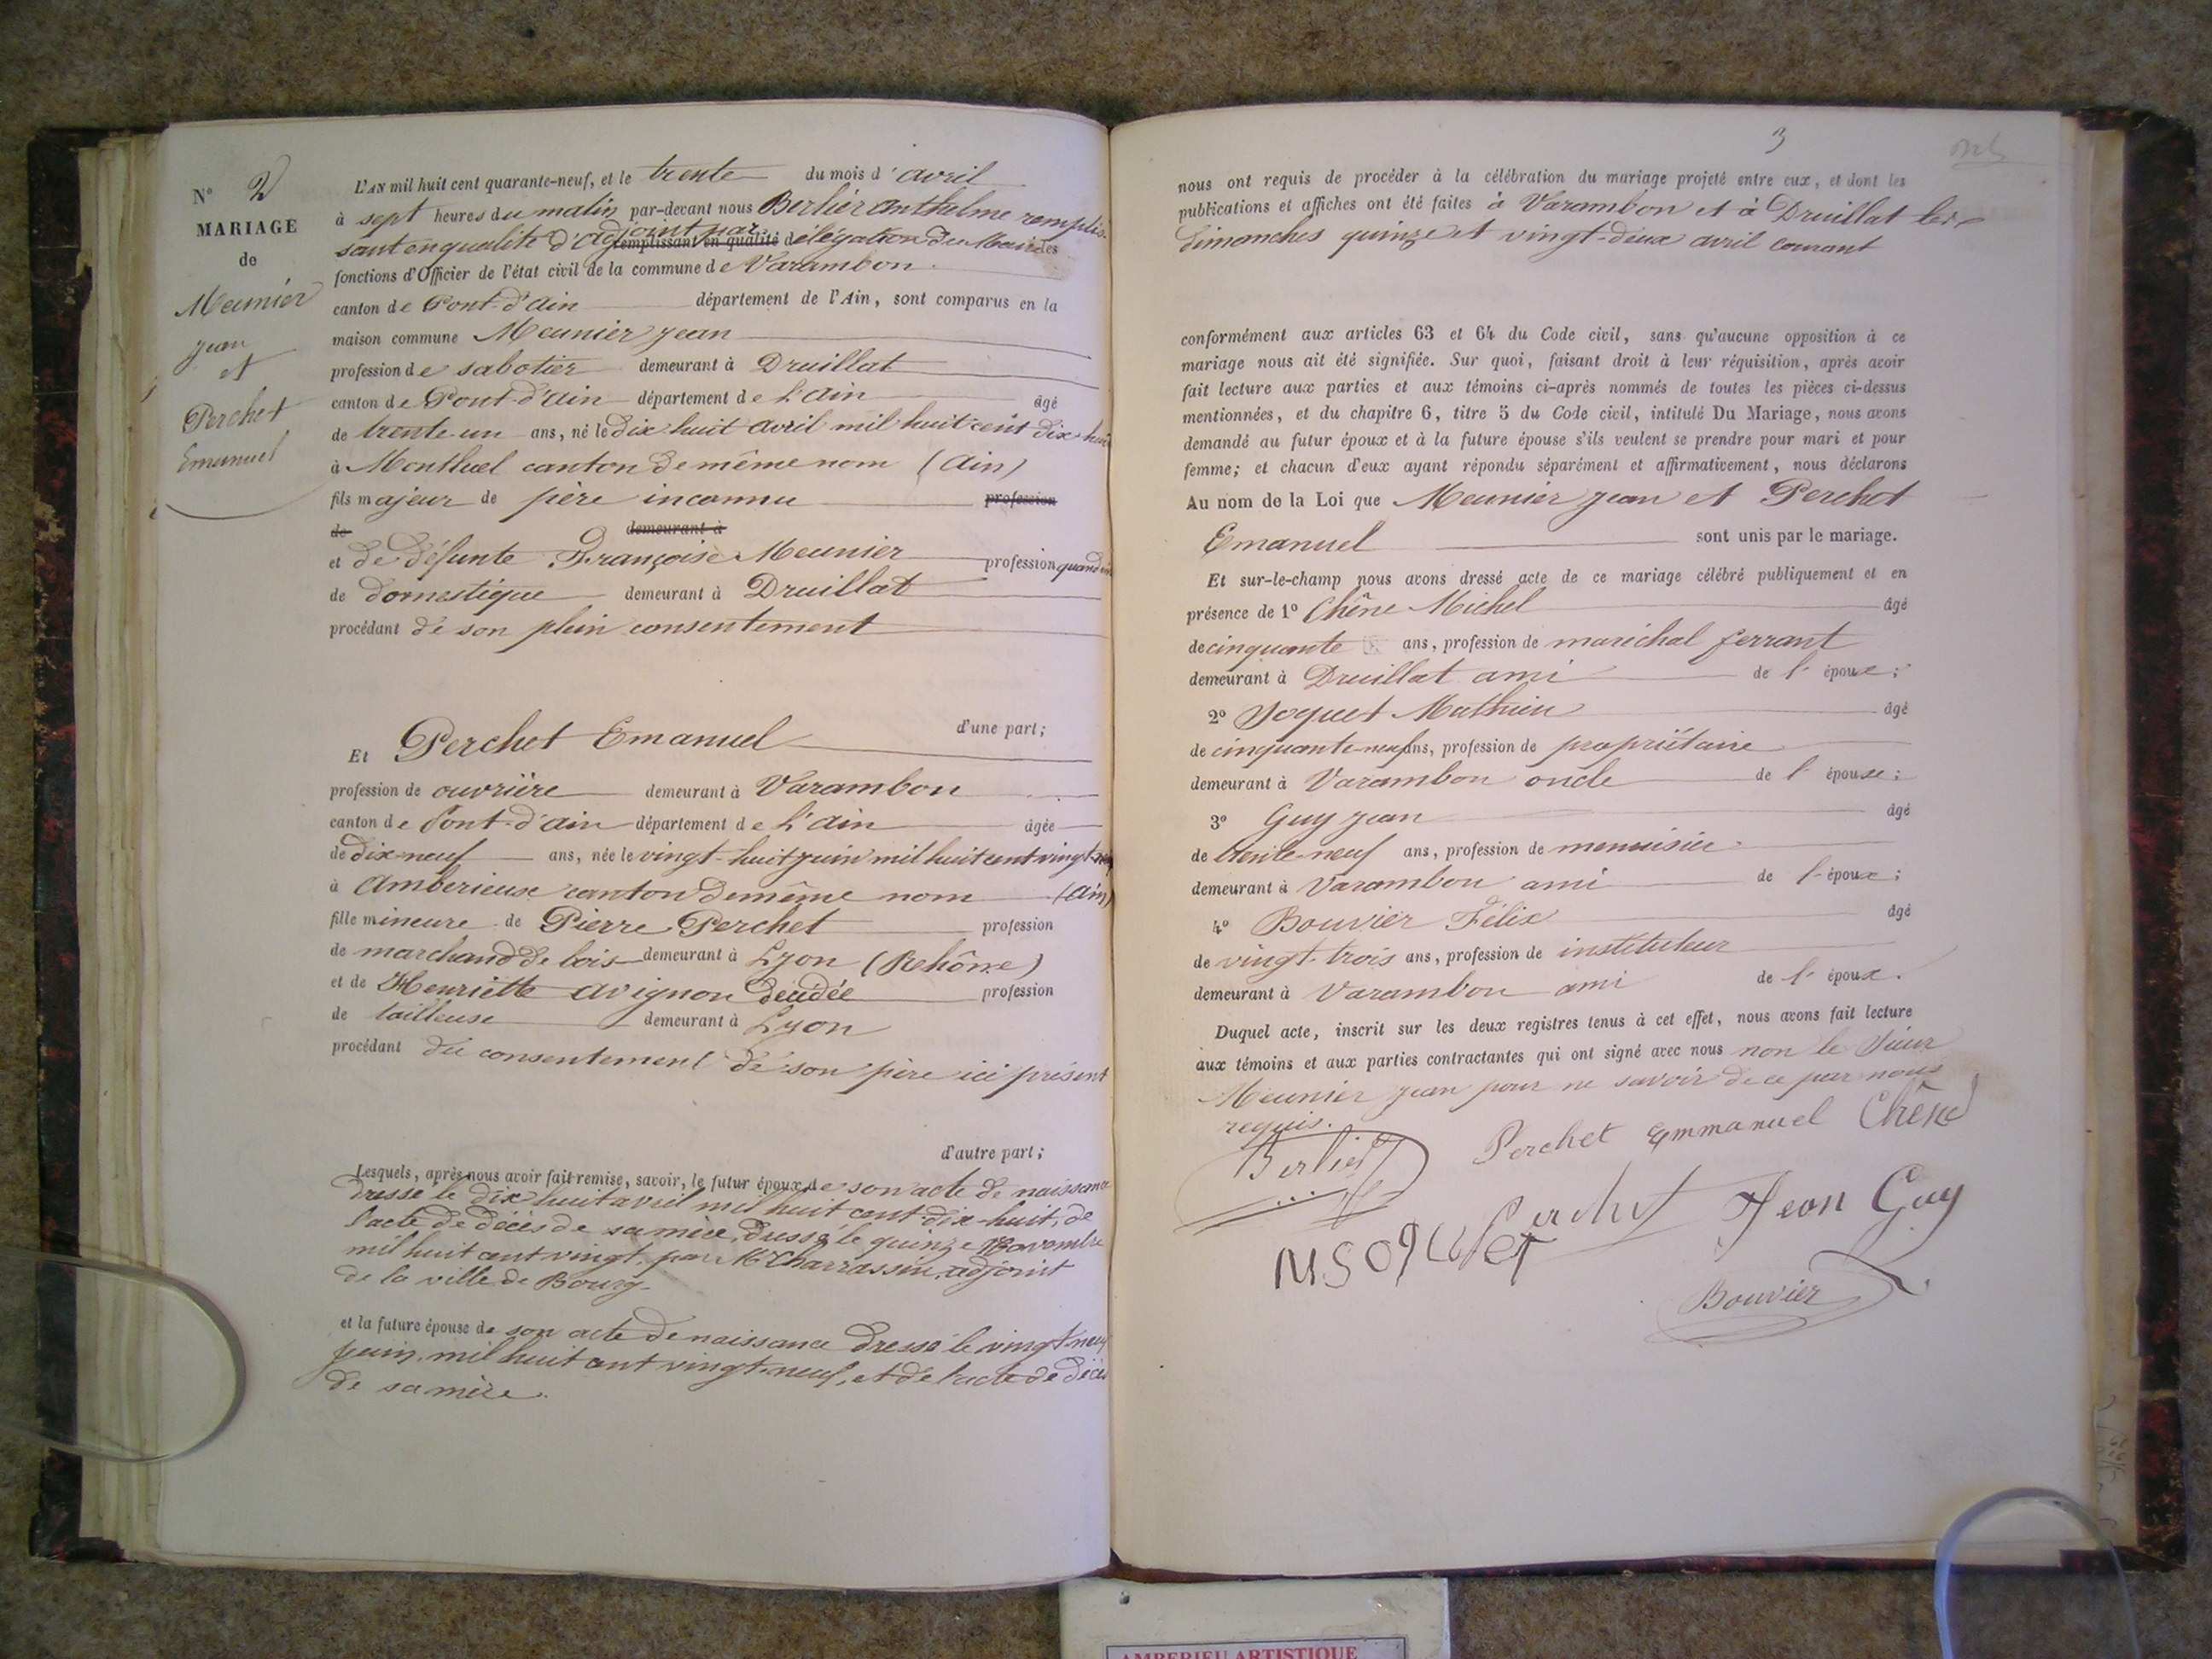 N° 2
MARIAGE
de
Meunier
jean
et
Perchet
Emanuel
L'AN mil huit cent quarante-neuf, et le trente du mois d'avril
à sept heures du matin par-devant nous Berlier anthelme remplis-
sant en qualité d'adjoint par remplissant en qualité délégation du Maire les
fonctions d'Officier de l'état civil de la commune de Varambon
canton de Pont-d'ain département de l'Ain, sont comparus en la
maison commune Meunier jean
profession de sabotier demeurant à Druillat
canton de Pont-d'ain département de l'ain âgé
de trente un ans, né le dix huit avril mil huit cent dix huit
à Montluel canton de même nom (ain)
fils majeur de père inconnu profession
de demeurant à
et de défunte Françoise Meunier profession quand
de domestique demeurant à Druillat
procédant de son plein consentement
d'une part;
Et Perchet Emanuel
profession de ouvrière demeurant à Varambon
canton de Pont-d'ain département de l'ain âgée
de dix-neuf ans, née le vingt-huit juin mil huit cent vingt-neuf
à Amberieux canton de même nom (ain)
fille mineure de Pierre Perchet profession
de marchand de bois demeurant à Lyon (Rehône)
et de Henriette avignon décidée profession
de tailleuse demeurant à Lyon
procédant du consentement de son père ici présent
d'autre part;
Lesquels, après nous avoir fait remise, savoir, le futur époux de son acte de naissance
dressé le dix huit avril mil huit cent dix-huit, de
l'acte de décès de sa mère, dressé le quinze novembre
mil huit cent vingt, par Mr Charrassin, adjoint
de la ville de Bourg-
et la future épouse de son acte de naissance dressé le vingt-neuf
juin, mil huit cent vingt-neuf, et de l'acte de décès
de sa mère.
3
nous ont requis de procéder à la célébration du mariage projeté entre eux, et dont les
publications et affiches ont été faites à Varambon et à Druillat les
dimanches quinze et vingt-deux avril courant
conformément aux articles 63 et 64 du Code civil, sans qu'aucune opposition à ce
mariage nous ait été signifiée. Sur quoi, faisant droit à leur réquisition, après avoir
fait lecture aux parties et aux témoins ci-après nommés de toutes les pièces ci-dessus
mentionnées, et du chapitre 6, titre 5 du Code civil, intitulé Du Mariage, nous avons
demandé au futur époux et à la future épouse s'ils veulent se prendre pour mari et pour
femme; et chacun d'eux ayant répondu séparément et affirmativement, nous déclarons
Au nom de la Loi que Meunier jean et Perchet
Emanuel sont unis par le mariage.
Et sur-le-champ nous avons dressé acte de ce mariage célébré publiquement et en
présence de 1° Chêne Michel âgé
de cinquante ans, profession de maréchal ferrant
demeurant à Druillat ami de l'époux;
2° Soquet Mathieu âgé
de cinquante-neuf ans, profession de propriétaire
demeurant à Varambon oncle de l'épouse;
3° Guy jean âgé
de trente-neuf ans, profession de menuisier
demeurant à Varambon ami de l'époux;
4° Bouvier Félix âgé
de vingt-trois ans, profession de instituteur
demeurant à Varambon ami de l'époux.
Duquel acte, inscrit sur les deux registres tenus à cet effet, nous avons fait lecture
aux témoins et aux parties contractantes qui ont signé avec nous non le Sieur
Meunier jean pour ne savoir de ce par nous
requis.
Berlier Perchet Emmanuel Chêne
M Soquet Perchet Jean Guy
Bouvier
AMBERIEU ARTISTIQUE